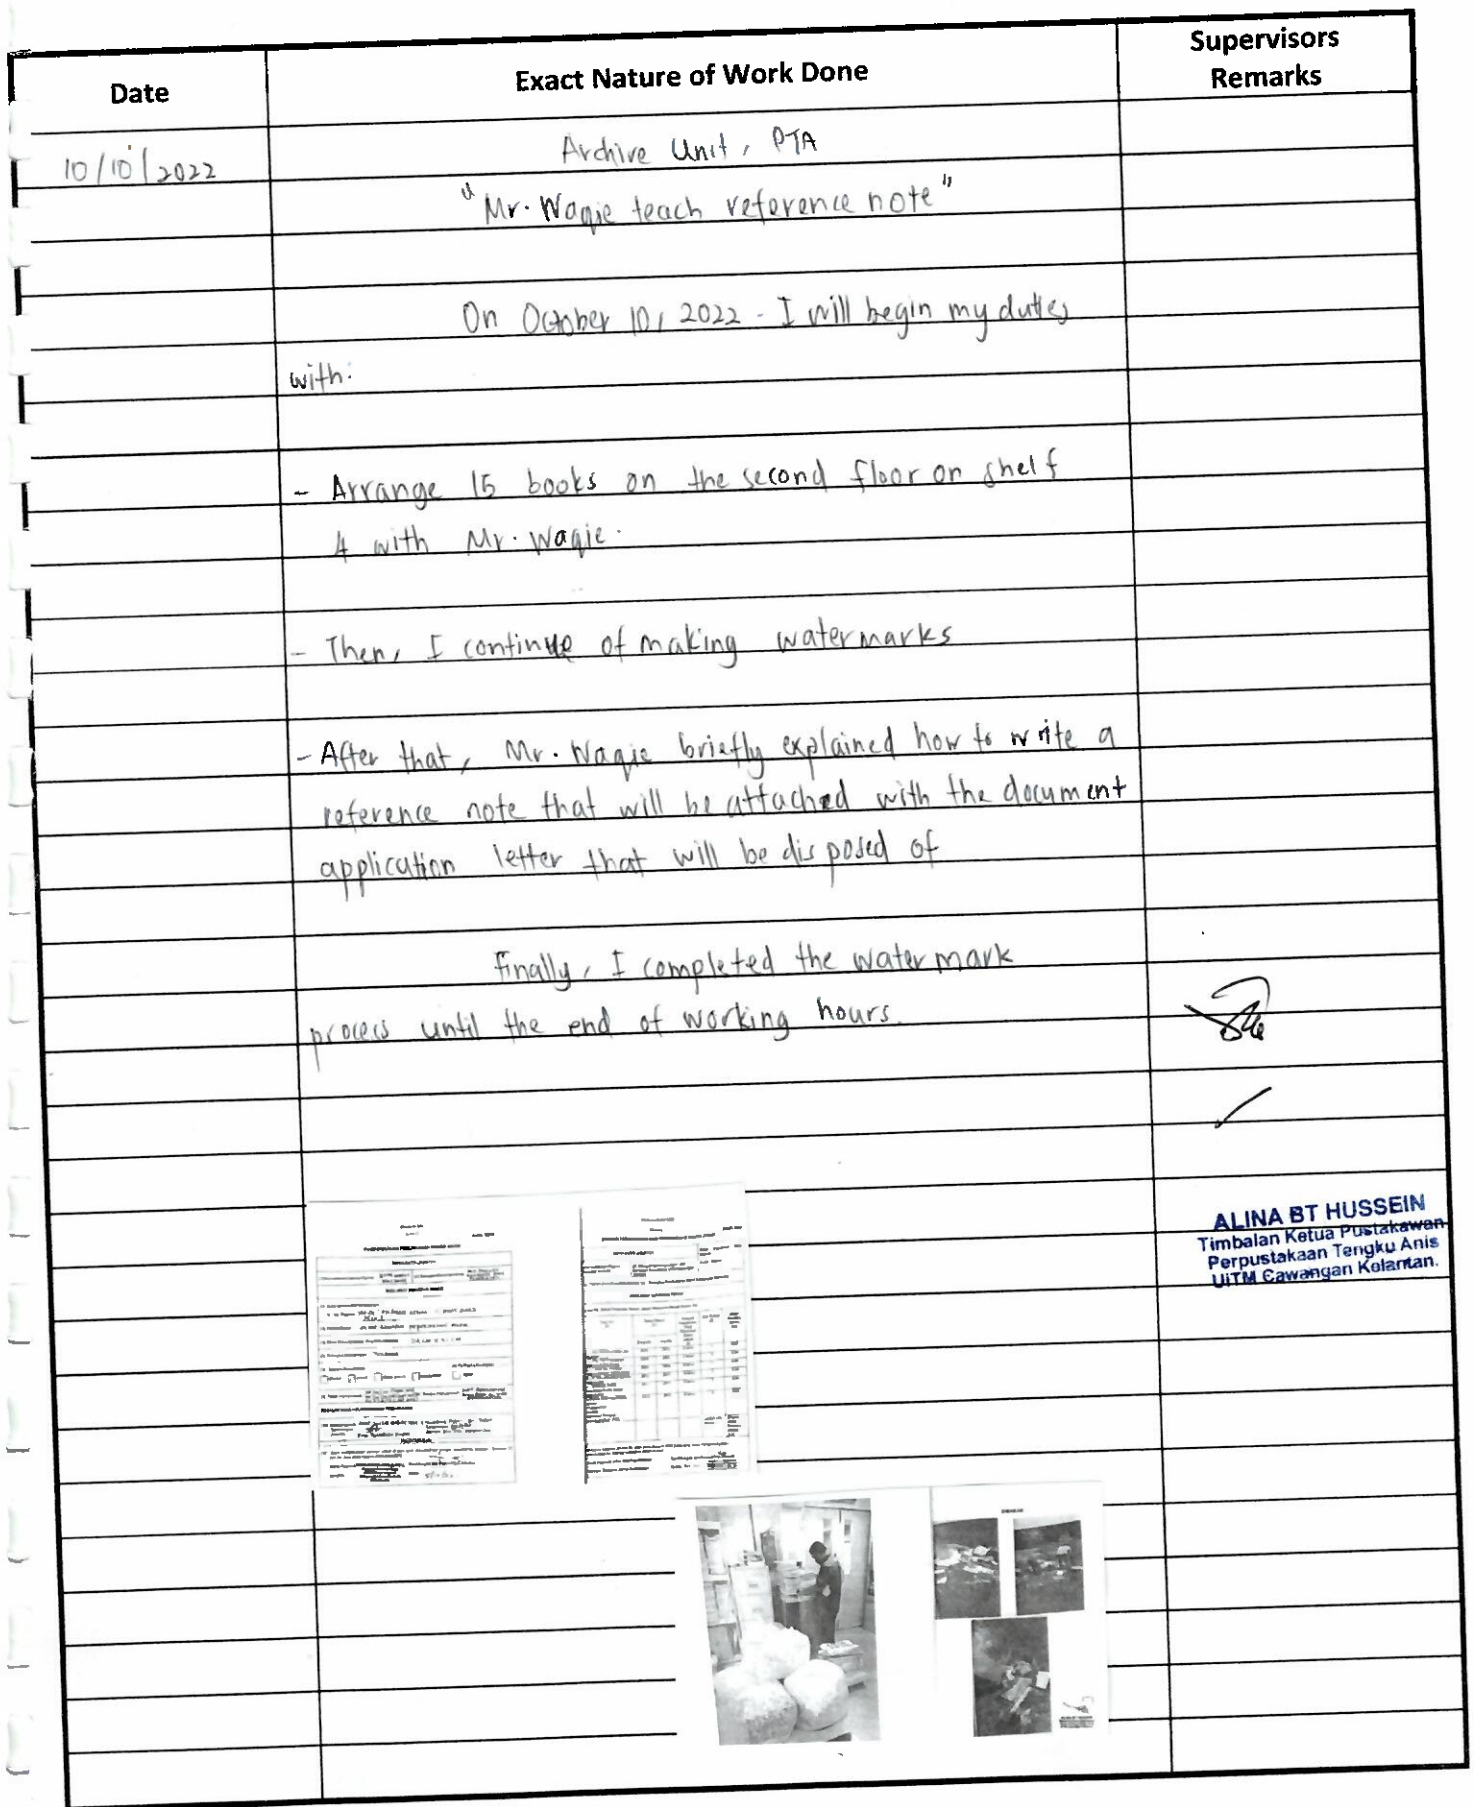 Date
Exact Nature of Work Done
Supervisors
Remarks
10/10/2022
Archive Unit, PTA
"Mr. Waqie teach reference note"
On October 10, 2022 - I will begin my duties
with:
- Arrange 15 books on the second floor on shelf
4 with Mr. Waqie.
- Then, I continue of making watermarks
- After that, Mr. Waqie briefly explained how to write a
reference note that will be attached with the document
application letter that will be disposed of
Finally, I completed the watermark
process until the end of working hours.
ALINA BT HUSSEIN
Timbalan Ketua Pustakawan
Perpustakaan Tengku Anis
UiTM Cawangan Kelantan.